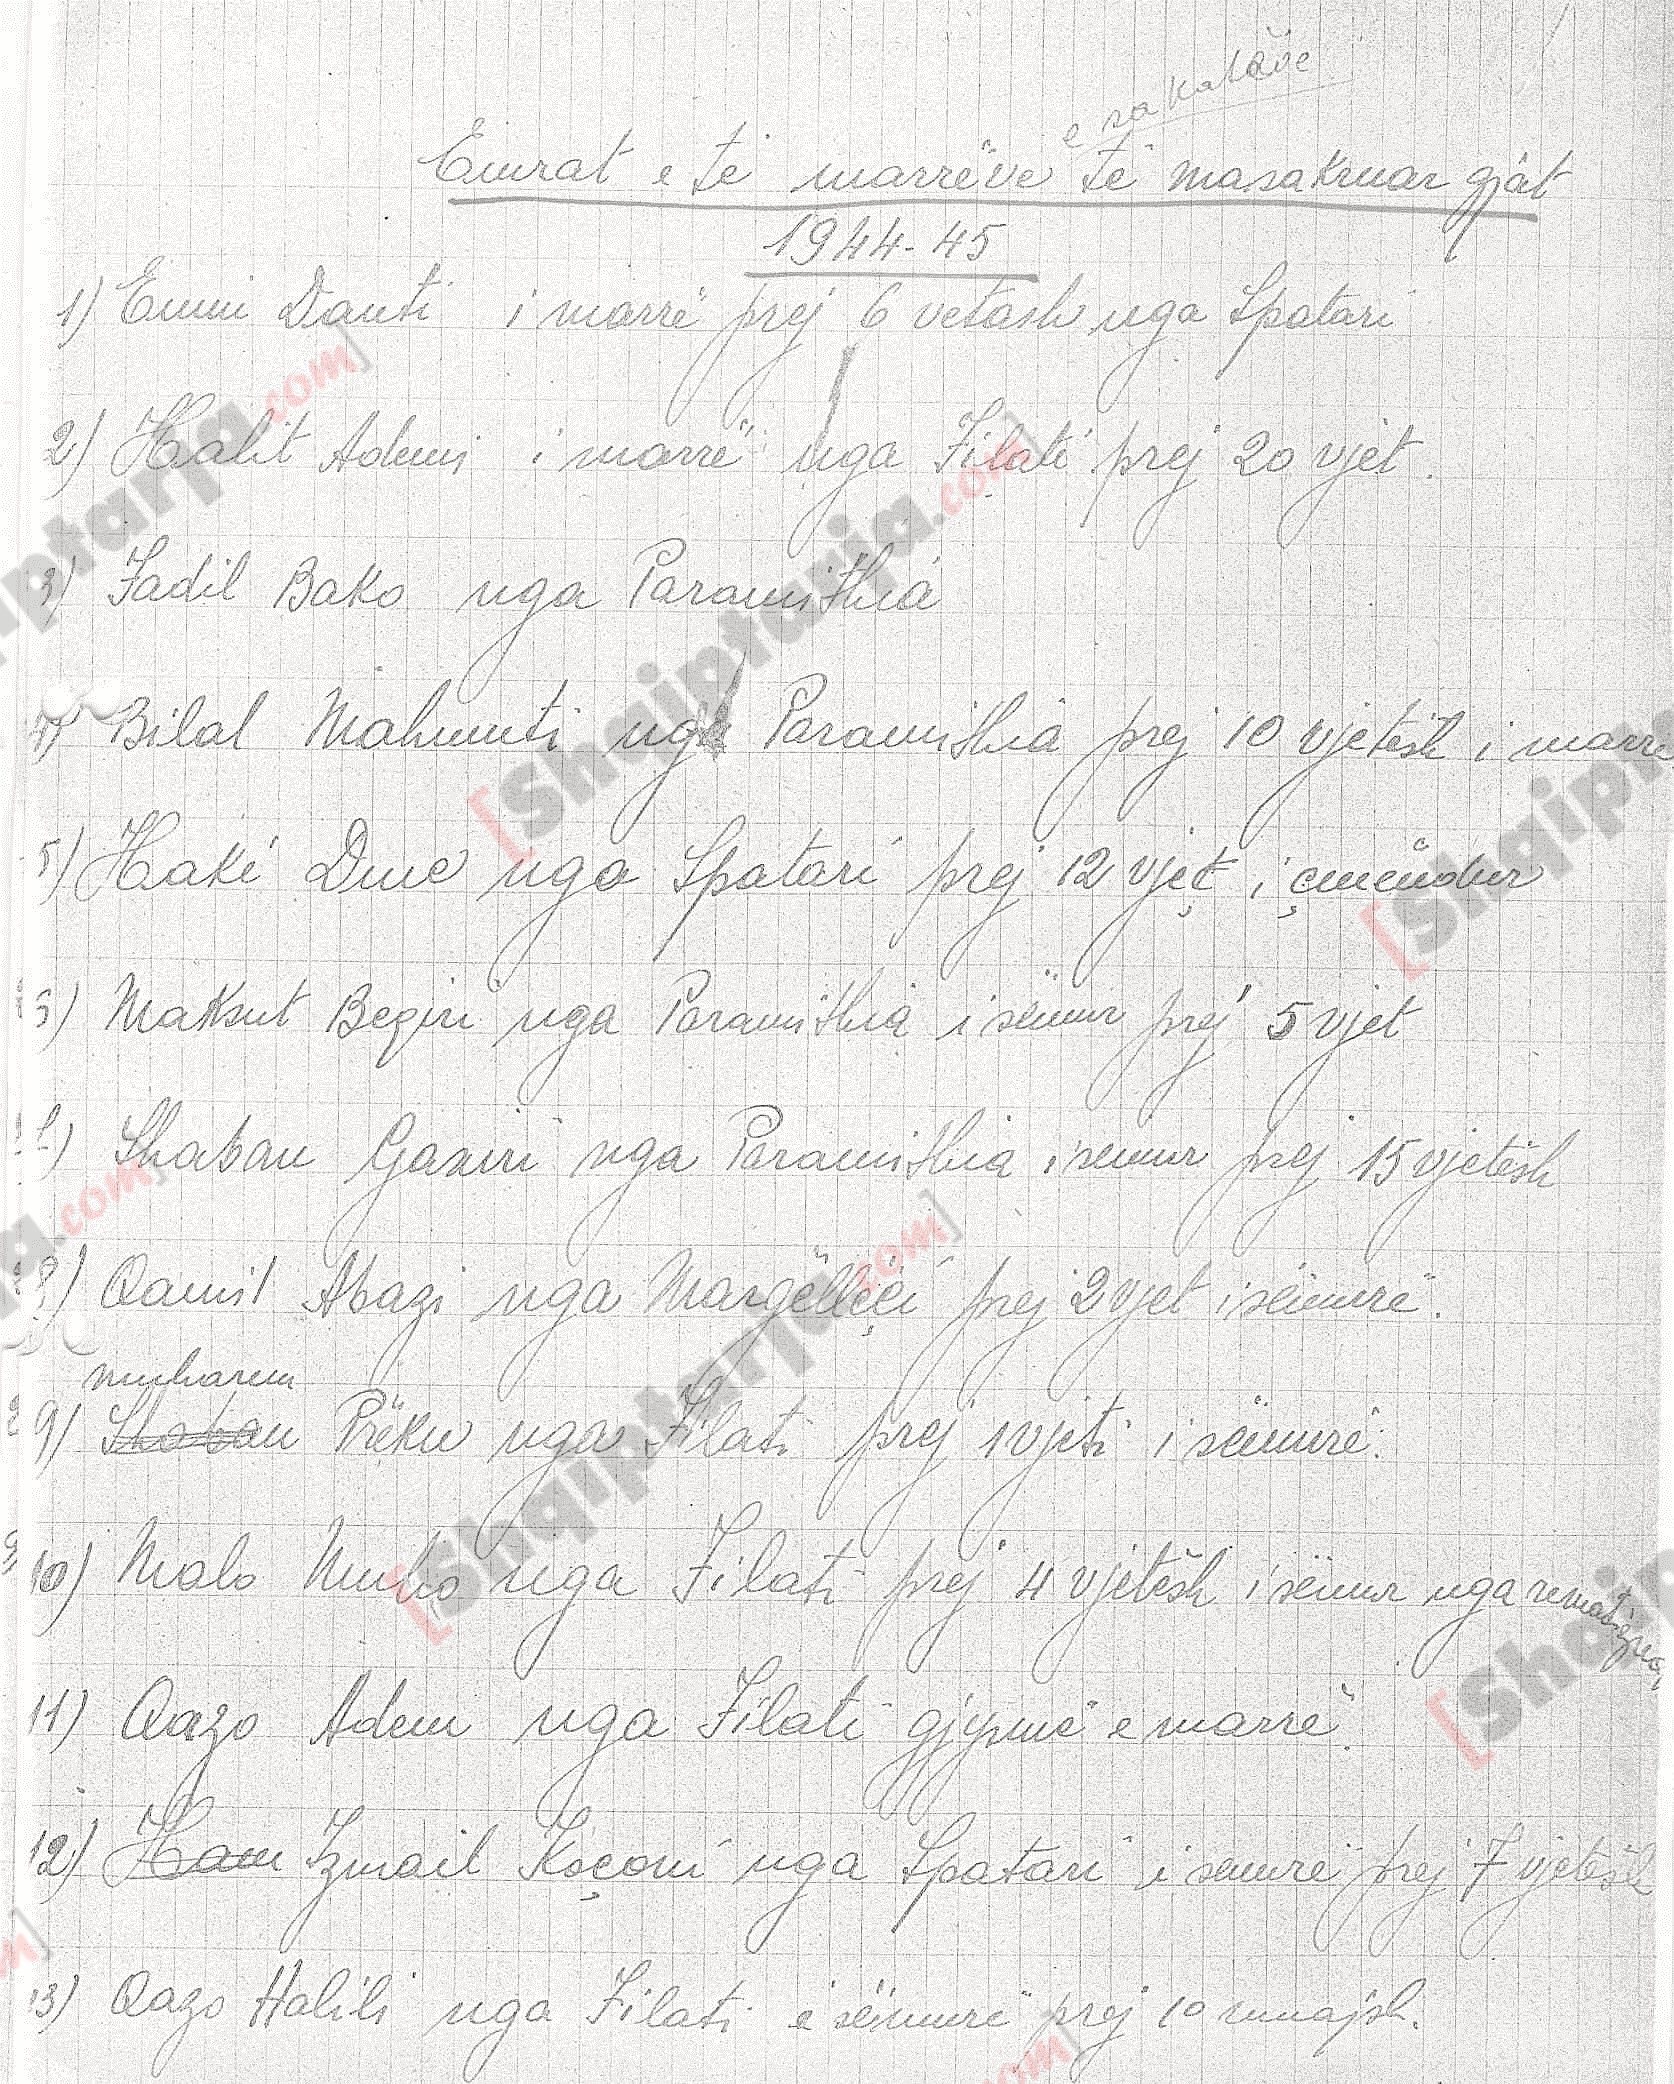 e sakatëve
Emrat e të marrëve të masakruar gját
1944-45
1) Emni Danti i marrë prej 6 vetash nga Spatari
2) Halit Ademi i marrë nga Filati prej 20 vjet.
3) Fadil Bako nga Paramithia
4) Bilal Mahmuti nga Paramithia prej 10 vjetësh i marrë
5) Haki Duc nga Spatari prej 12 vjet i çmëndur
6) Maksut Beqiri nga Paramithia i sëmur prej 5 vjet
7) Shaban Gaxiri nga Paramithia i semur prej 15 vjetësh
8) Qamil Abazi nga Margëlliçi prej 2 vjet i sëmurë.
muharem
9) Shaban Prëku nga Filati prej 1 vjeti i sëmurë.
10) Malo Muho nga Filati prej 4 vjetësh i sëmur nga
11) Qazo Adem nga Filati gjysmë e marrë.
12) Ham Izmail Koçoni nga Spatari i semurë prej 7 vjetësh
13) Qazo Halili nga Filati e sëmurë prej 10 muajsh.
[Shqiptarja.com]